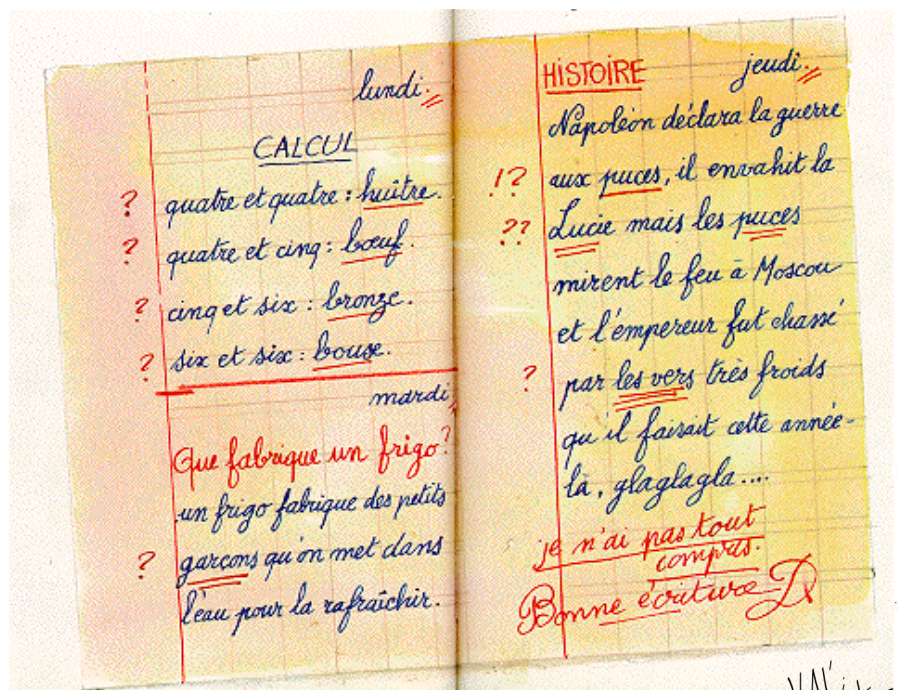 lundi.
CALCUL
? quatre et quatre : huître.
? quatre et cinq : bœuf.
? cinq et six : bronze.
? six et six : bouse.
mardi
Que fabrique un frigo?
un frigo fabrique des petits
? garçons qu'on met dans
l'eau pour la rafraîchir.
HISTOIRE jeudi.
Napoléon déclara la guerre
!? aux puces, il envahit la
?? Lucie mais les puces
mirent le feu à Moscou
et l'empereur fut chassé
? par les vers très froids
qu'il faisait cette année-
là, glaglagla....
je n'ai pas tout
compris.
Bonne écriture